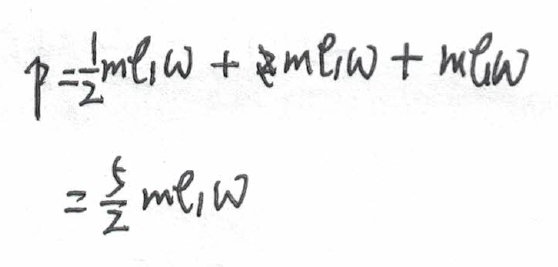 p = \frac{1}{2} m l_1 ω + m l_1 ω + m l_1 ω
= \frac{5}{2} m l_1 ω